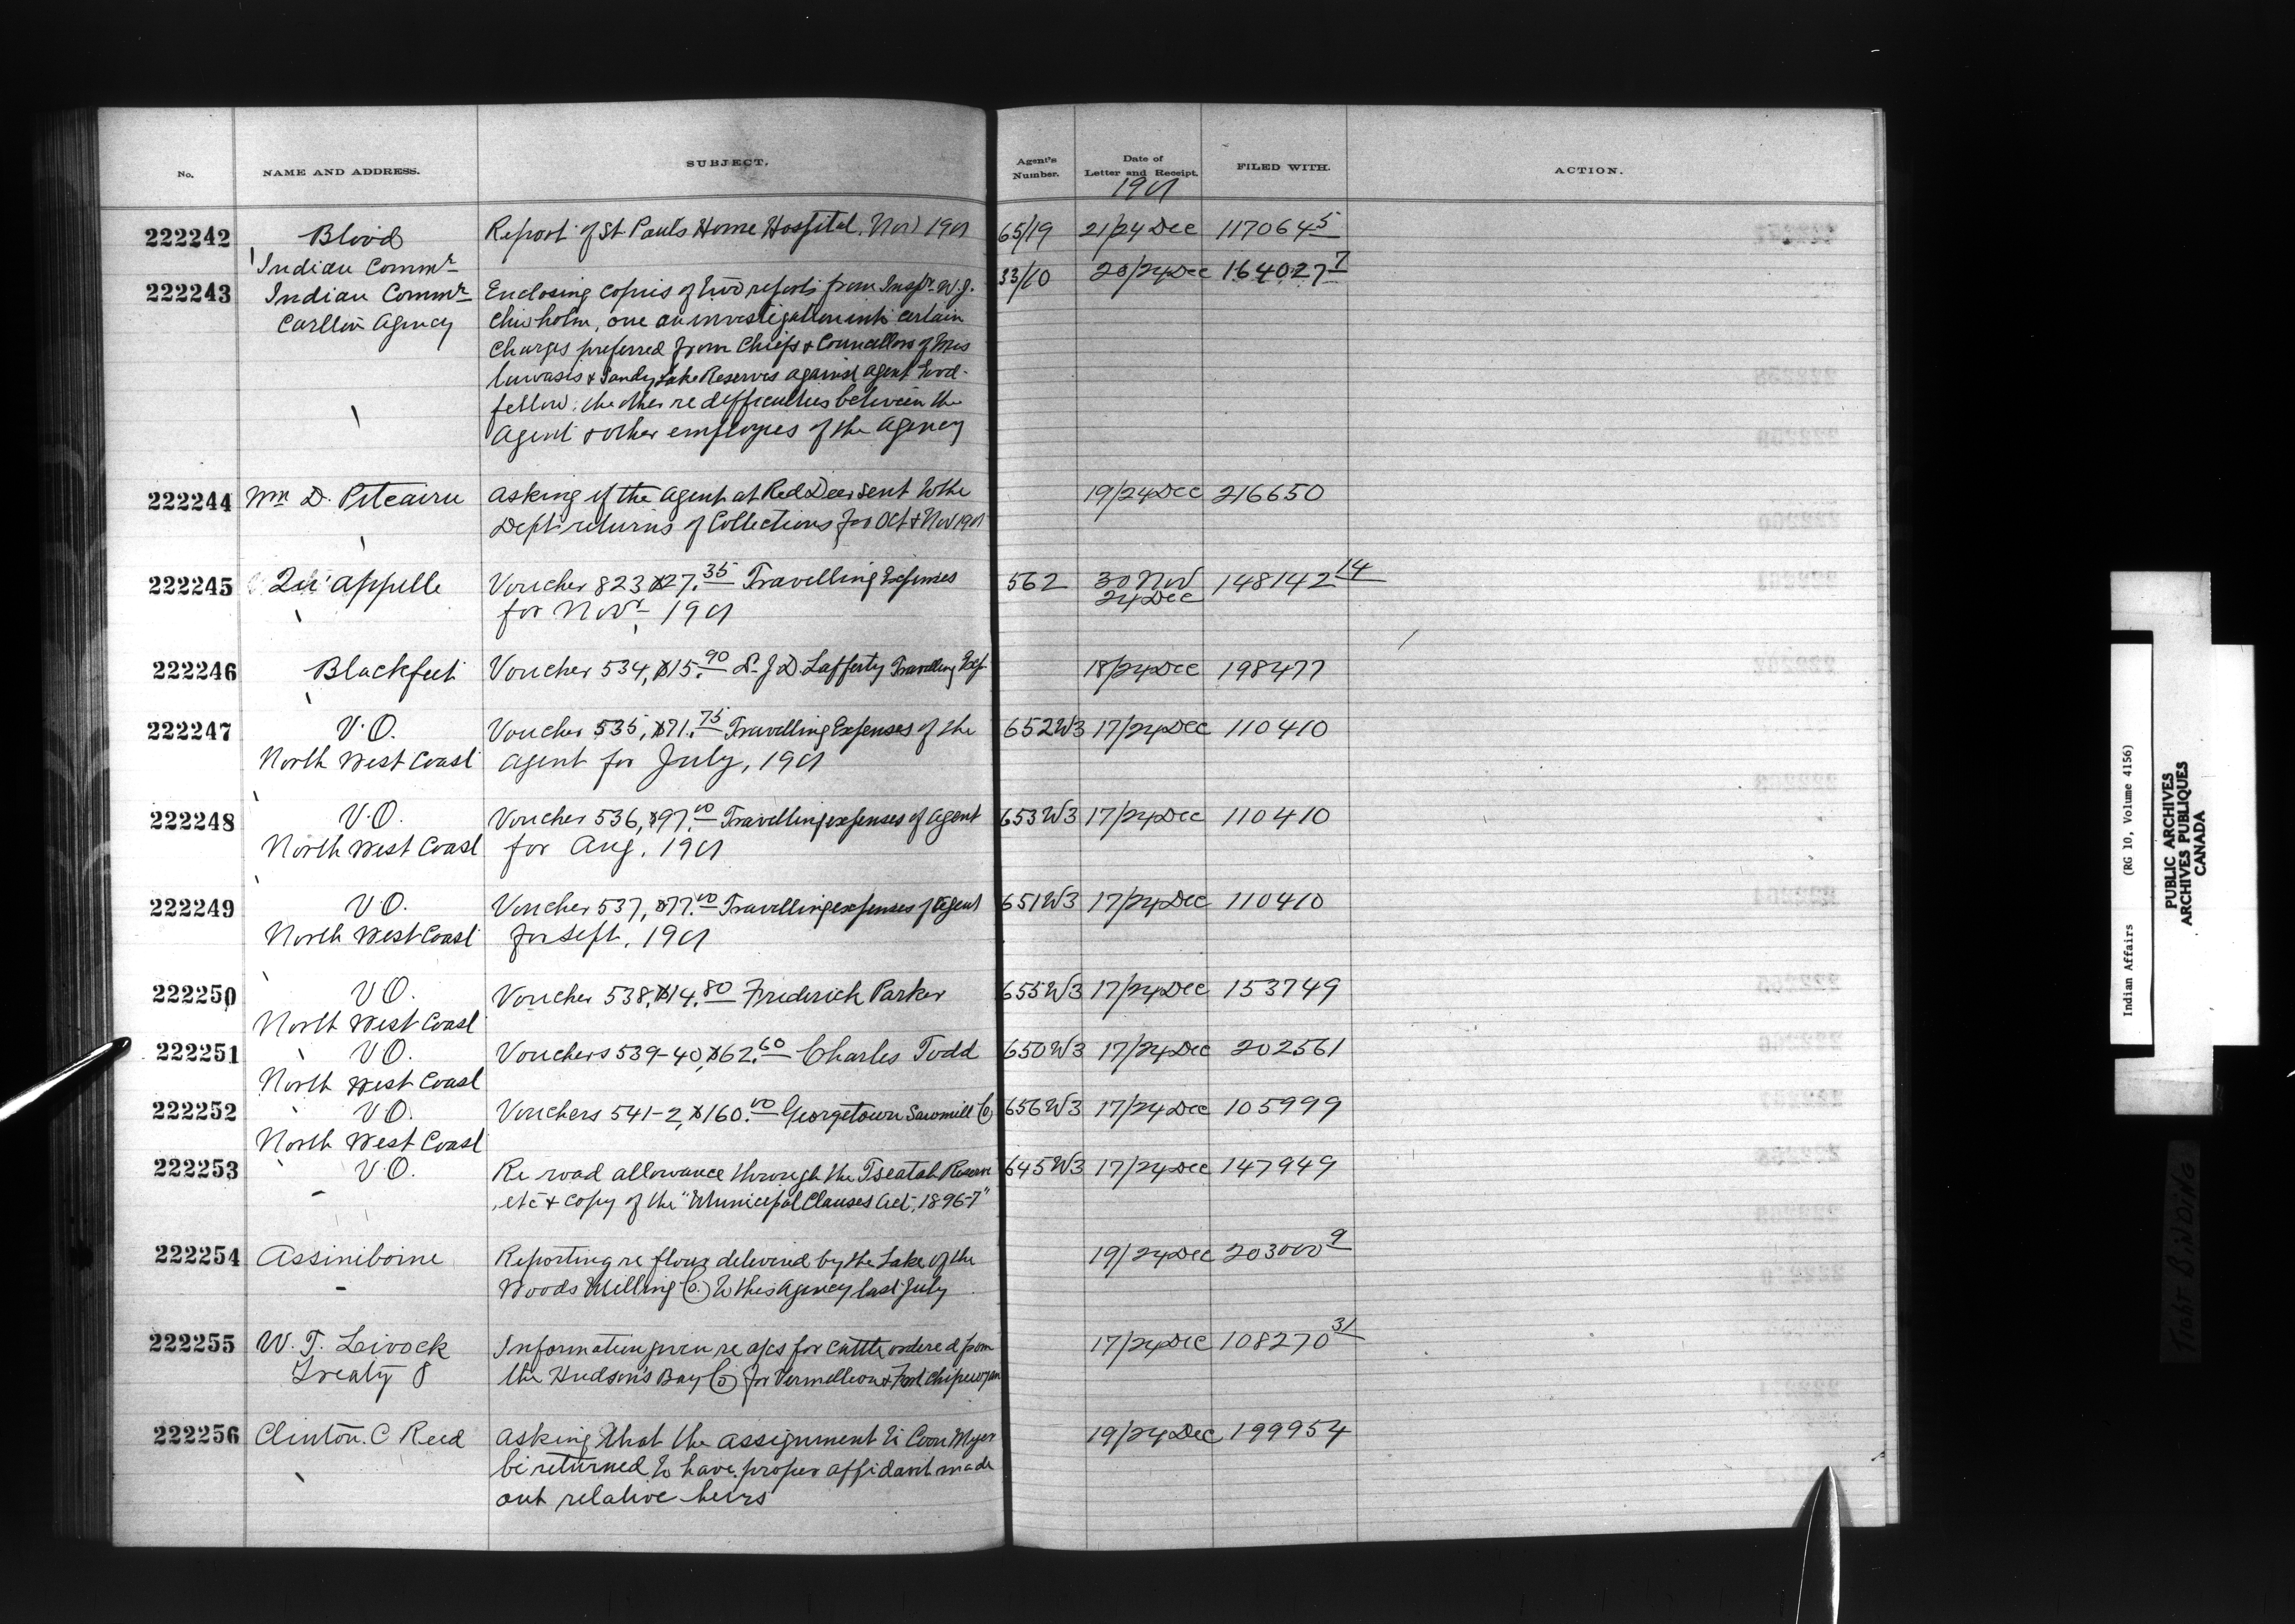 No. NAME AND ADDRESS. SUBJECT. Agent's Number. Date of Letter and Receipt. FILED WITH. ACTION.
1901
222242 Blood Report of St. Paul's Home Hospital, Nov 1901 65/19 21/24 Dec 117064 5
Indian Commr
222243 Indian Commr Enclosing copies of two reports from Inspr. W. J. 33/10 20/24 Dec 164027 7
Carlton Agency Chisholm, one an investigation into certain
charges preferred from Chiefs & Councillors of Mis
tawasis & Sandy Lake Reserves against Agent Good-
fellow; the other re difficulties between the
Agent & other employees of the Agency
222244 Wm D. Pitcairn Asking if the Agent at Red Deer sent to the 19/24 Dec 216650
Dept. returns of Collections for Oct & Nov 1901
222245 Qu'Appelle Voucher 823 $27.35 Travelling Expenses 562 30 Nov 148142 14
for Novr. 1901 24 Dec
222246 Blackfeet Voucher 534, $15.90 Dr. J. D. Lafferty Travelling Exp. 18/24 Dec 198477
222247 V.O. Voucher 535, $71.75 Travelling Expenses of the 652W3 17/24 Dec 110410
North West Coast Agent for July, 1901
222248 V.O. Voucher 536, $97.00 Travelling expenses of Agent 653W3 17/24 Dec 110410
North West Coast for Aug. 1901
222249 V.O. Voucher 537, $77.00 Travelling expenses of Agent 651W3 17/24 Dec 110410
North West Coast for Sept. 1901
222250 V.O. Voucher 538, $14.80 Frederich Parker 655W3 17/24 Dec 153749
North West Coast
222251 V.O. Vouchers 539-40, $62.60 Charles Todd 650W3 17/24 Dec 202561
North West Coast
222252 V.O. Vouchers 541-2, $160.00 Georgetown Sawmill Co 656W3 17/24 Dec 105999
North West Coast
222253 V.O. Re road allowance through the Tseatah Reserve 645W3 17/24 Dec 147949
etc & copy of the "Municipal Clauses Act, 1896-7"
222254 Assiniboine Reporting re flour delivered by the Lake of the 19/24 Dec 203000 9
Woods Milling Co. to this Agency last July
222255 W. T. Livock Information given re a/cs for cattle ordered from 17/24 Dec 108270 31
Treaty 8 the Hudson's Bay Co for Vermillion & Fort Chipewyan
222256 Clinton. C Reed Asking that the assignment to Coon Myer 19/24 Dec 199954
be returned to have proper affidavit made
out relative heirs
Indian Affairs (RG 10, Volume 4156)
PUBLIC ARCHIVES
ARCHIVES PUBLIQUES
CANADA
TIGHT BINDING